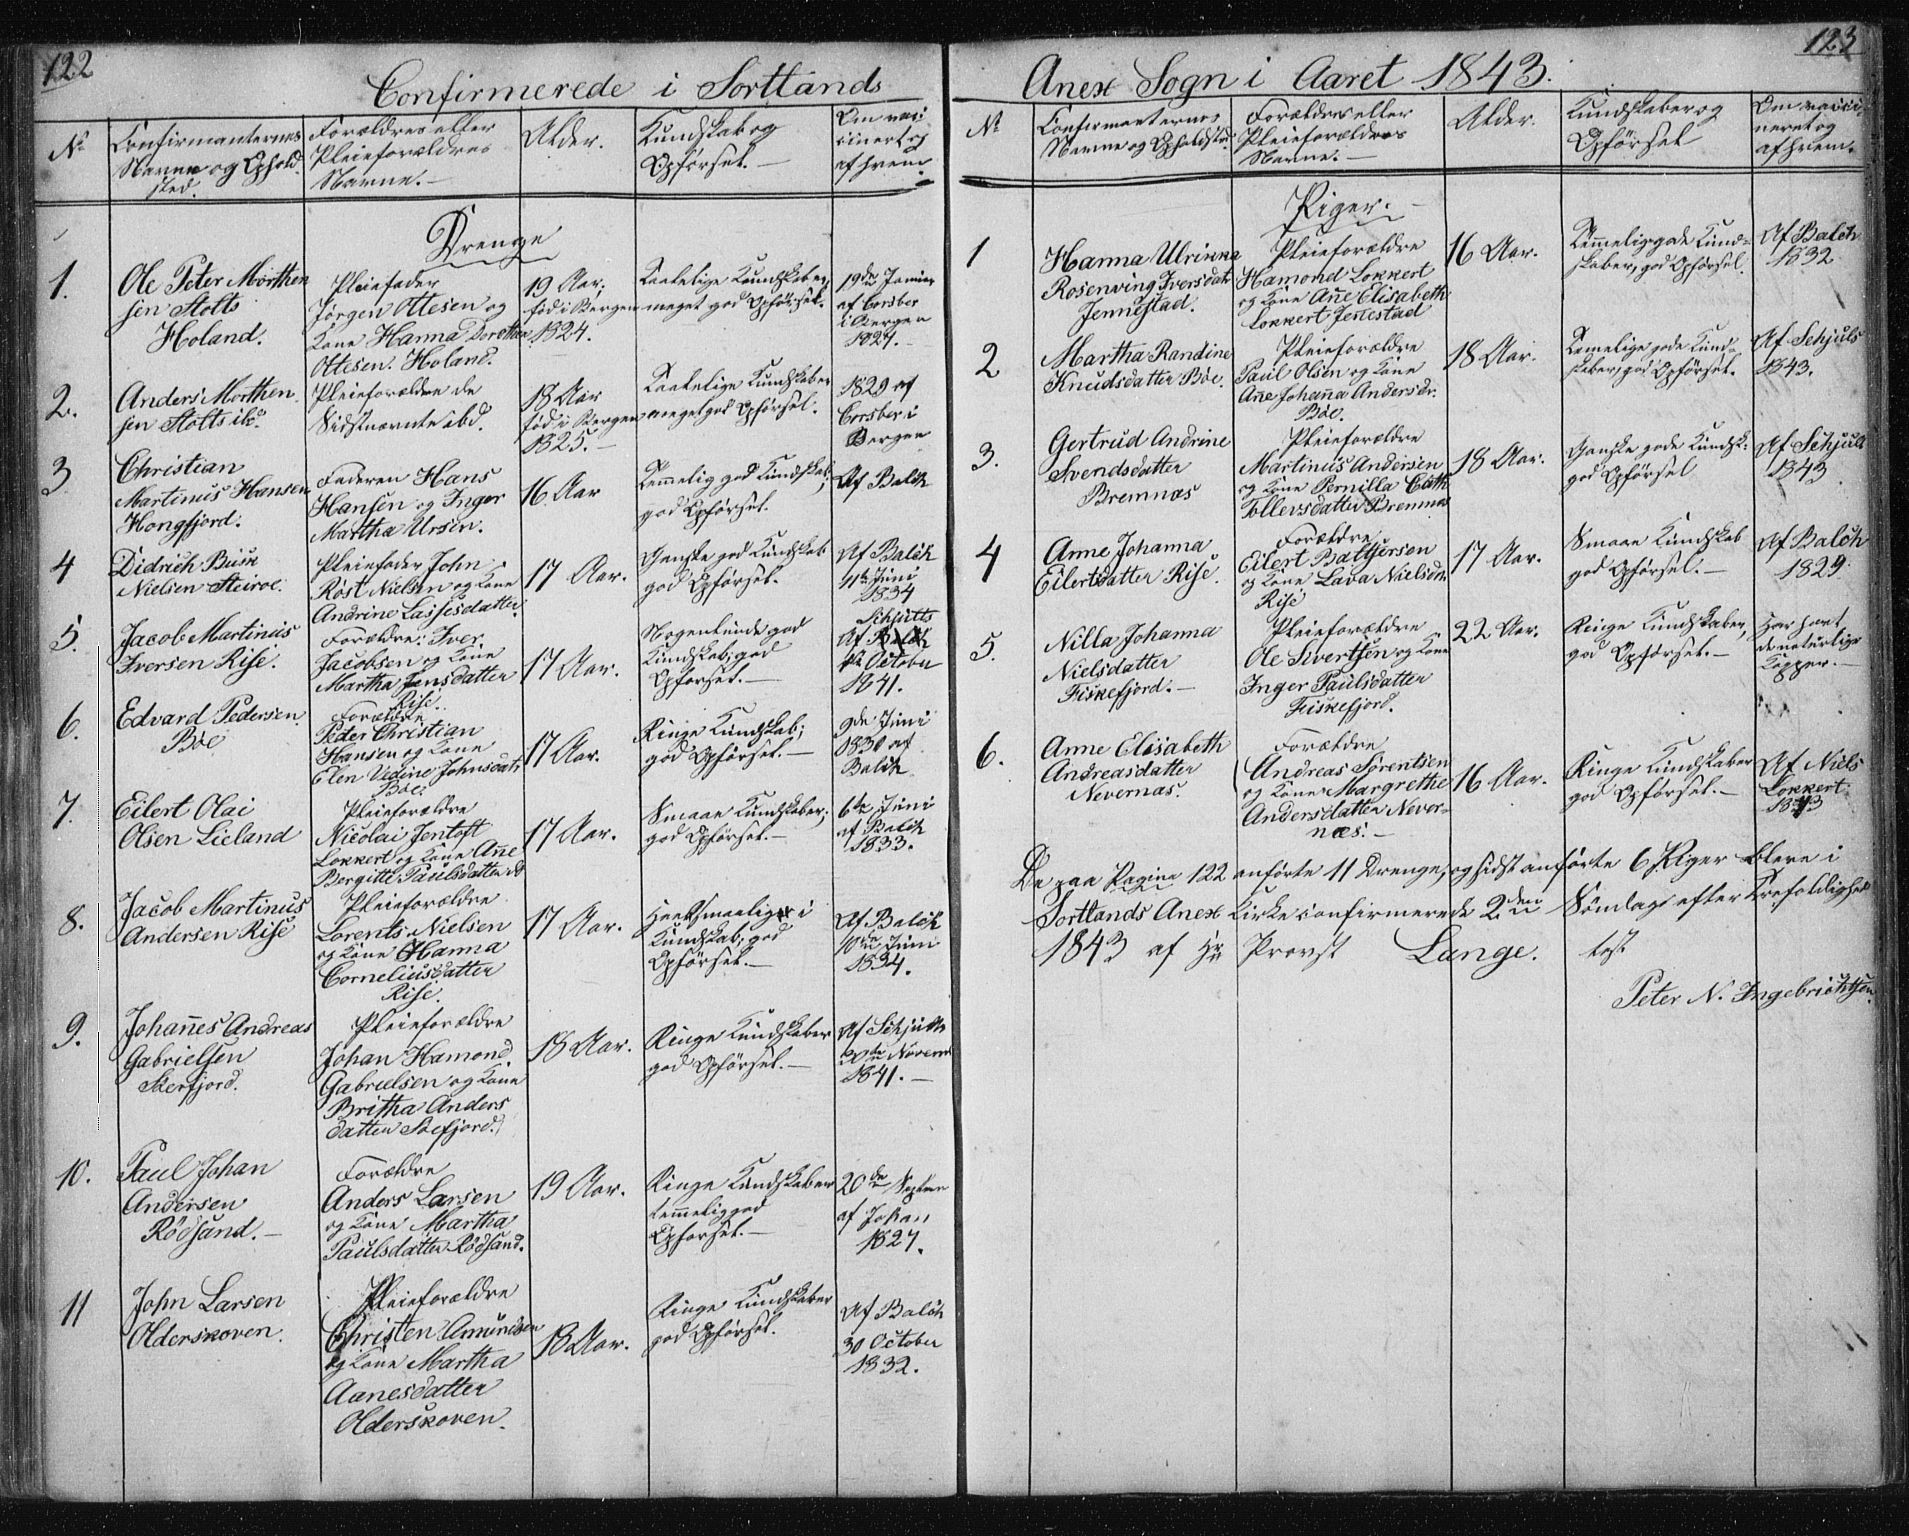 122
Confirmerede i Sortlands
No
Confirmanternes
Navne og Ophold-
sted.
Forældres eller
Pleieforældres
Navne.-
Alder.
Kundskab og
Opförsel.-
Om vac-
cineret og
af hvem.
Drenge
1.
Ole Peter Morthen
sen Stolts
Holand.
Pleiefader
Jörgen Ottesen og
Kone Hanna Dorothea
Ottesen. Holand.
19 Aar,
född i Bergen
1824.
Kundskaber,
meget god Opförsel.
19de Januar
af Corsber
i Bergen
1827.
2.
Anders Morthen
sen Stolts ibd.
Pleieforældre de
Sidstnævnte ibd.
18 Aar
född i Bergen
1825.-
Kundskaber
meget god Opförsel.
1829 af
Corsber i
Bergen
3
Christian
Martinus Hansen
Hongfjord.
Faderen Hans
Hansen og Inger
Martha Ursin.
16 Aar
Temmelig god Kundskab,
god Opförsel.
Af Balch
4
Didrich Busk
Nielsen Steiroe.
Pleiefader John
Röst Nielsen og Kone
Andrine Lassesdatter.
17 Aar.
Ganske god Kundskab
god Opförsel.
Af Balch
11te Juni
1834
5.
Jacob Martinus
Iversen Rise.
Forældre: Iver
Jacobsen og Kone
Martha Jensdatter
Rise.
17 Aar.
Nogenlunde god
Kundskab; god
Opförsel.-
Schjults
Af Balch
October
1841.
6.
Edvard Pedersen
Böe
Forældre
Peder Christian
Hansen og Kone
Elen Vedine Johnsdatr
Böe
17 Aar.
Ringe Kundskab;
god Opförsel.-
9de Juni
1830 af
Balch
7.
Eilert Olai
Olsen Lieland
Pleieforældre
Nicolai Jentoft
Lokkert og Kone Añe
Bergitte Paulsdatter
17 Aar.
Smaae Kundskaber,
god Opförsel.-
6te Juni
af Balch
1833.
8.
Jacob Martinus
Andersen Rise
Pleieforældre
Lorents Nielsen
og Kone Hanna
Corneliusdatter
Rise.
17 Aar.
i
Kundskab; god
Opförsel.-
Af Balch
10de Juni
1834.
9.
Johañes Andreas
Gabrielsen
Pleieforældre
Johan Hamond
Gabrielsen og Kone
Britha Anders
datter
18 Aar.
Ringe Kundskaber
god Opförsel.-
Af Schjults
30de Novemb
1841.-
10.
Paul Johan
Andersen
Rödsand.-
Forældre
Anders Larsen
og Kone Martha
Paulsdatter Rödsand.
19 Aar.
Ringe Kundskaber
temmelig god
Opförsel.-
20de Septem
af Johan
1827.
11
John Larsen
Olderskoven.
Pleieforældre
Christen Amundsen
og Kone Martha
Aanesdatter
Olderskoven.
18 Aar.
Ringe Kundskaber
god Opförsel.
Af Balch
30 October
1832.
123
Anex Sogn i Aaret 1843.
No
Confirmanternes
Navne og Opholdsted.
Forældres eller
Pleieforældres
Navne.-
Alder.
Kundskaber og
Opförsel
Om vacci-
neret og
af hvem.
Piger.-
1
Hanna Ulrikka
Rosenving Iversdatr
Jennestad.
Pleieforældre
Hamond Lokkert
og Kone Añe Elisabeth
Lokkert Jenestad
16 Aar.
Temmelig gode Kund-
skaber, god Opförsel.
Af Balch
1832.
2
Martha Randine
Knudsdatter Böe.
Pleieforældre
Paul Olsen og Kone
Ane Johaña Andersdr.
Böe.
18 Aar.
Temelige gode Kund-
skaber, god Opförsel.
Af Schjuls
1843.
3.
Gertrud Andrine
Svendsdatter
Bremnæs
Pleieforældre
Martinus Andersen
og Kone Pernilla Cath
Tollevsdatter Bremnæs
18 Aar.
Ganske gode Kundsk-
god Opförsel
Af Schjult
1843
4
Anne Johanna
Eilertsdatter Rise.
Forældre
Eilert Baltsersen
og Kone Lava Nielsdr
Rise
17 Aar.
Smaae Kundskab
god Opförsel.-
Af Balch
1829.
5.
Nilla Johanna
Nielsdatter
Fiskefjord.-
Pleieforældre
Ole Sivertsen og Kone
Inger Paulsdatter
Fiskefjord.
22 Aar.
Ringe Kundskaber,
god Opförsel.-
Har havt
de naturlige
Kopper.-
6.
Anne Elisabeth
Andreasdatter
Nevernæs.
Forældre
Andreas Sörentsen
og Kone Margrethe
Andersdatter Never-
næs.-
16 Aar.
Ringe Kundskaber
god Opförsel.-
Af Niels
Lokkert
1843
De paa Pagina 122 anförte 11 Drenge, og sidst anförte 6 Piger bleve i
Sortlands Anex Kirke confirmerede 2den Söndag efter Trefoldighed
1843 af Hr Provst Lange. test
Peter N. Ingebrichtsen.